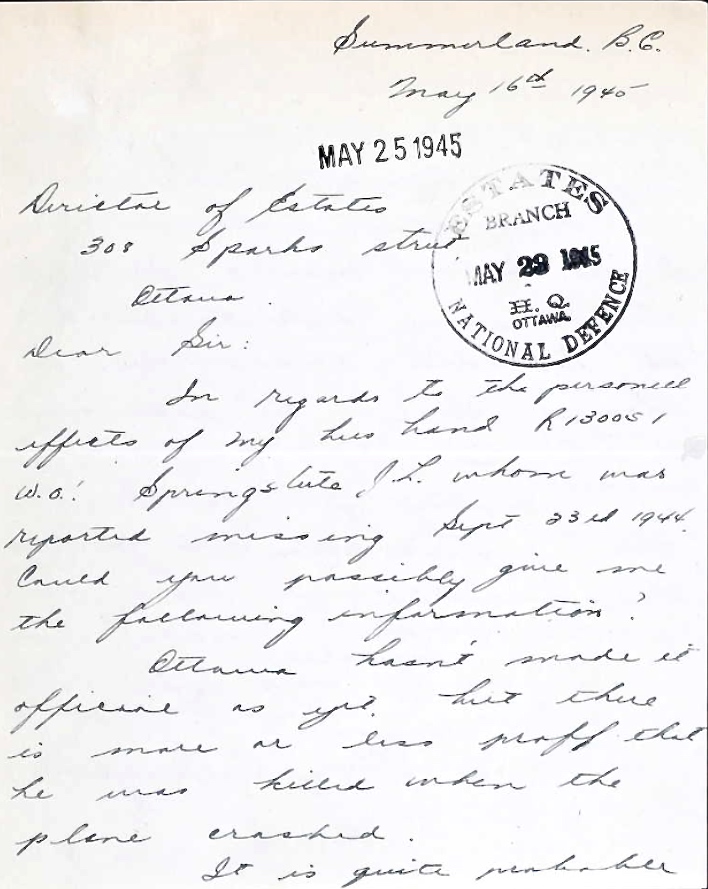 Summerland. B.C.
May 16th 1945
MAY 25 1945
ESTATES
BRANCH
MAY 29 1945
H. Q.
OTTAWA
NATIONAL DEFENCE
Director of Estates
308 Sparks street
Ottawa.
Dear Sir:
In regards to the personell
effects of my husband R130051
W.O.1 Springstute J.L. whom was
reported missing Sept 23rd 1944.
Could you possibly give me
the following information?
Ottawa hasn't made it
official as yet. but there
is more or less proff that
he was killed when the
plane crashed.
It is quite probable